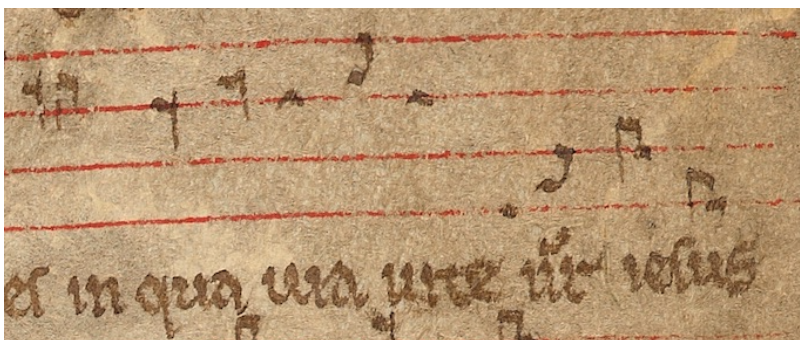 es in qua uia uite nr̄ iesus